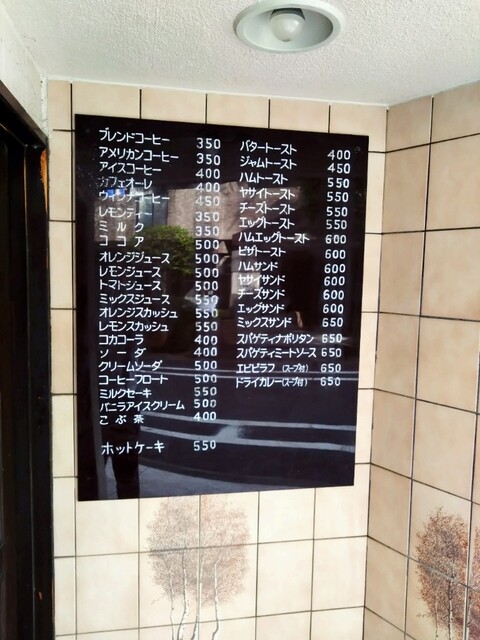 ブレンドコーヒー 350
アメリカンコーヒー 350
アイスコーヒー 400
カフェオーレ 400
ウィンナコーヒー 450
レモンティー 350
ミルク 350
ココア 500
オレンジジュース 500
レモンジュース 500
トマトジュース 500
ミックスジュース 550
オレンジスカッシュ 550
レモンスカッシュ 550
コカコーラ 400
ソーダ 400
クリームソーダ 500
コーヒーフロート 500
ミルクセーキ 550
バニラアイスクリーム 500
こぶ茶 400
ホットケーキ 550
バタートースト 400
ジャムトースト 450
ハムトースト 550
ヤサイトースト 550
チーズトースト 550
エッグトースト 550
ハムエッグトースト 600
ピザトースト 600
ハムサンド 600
ヤサイサンド 600
チーズサンド 600
エッグサンド 600
ミックスサンド 650
スパゲティナポリタン 650
スパゲティミートソース 650
エビピラフ (スープ付) 650
ドライカレー(スープ付) 650